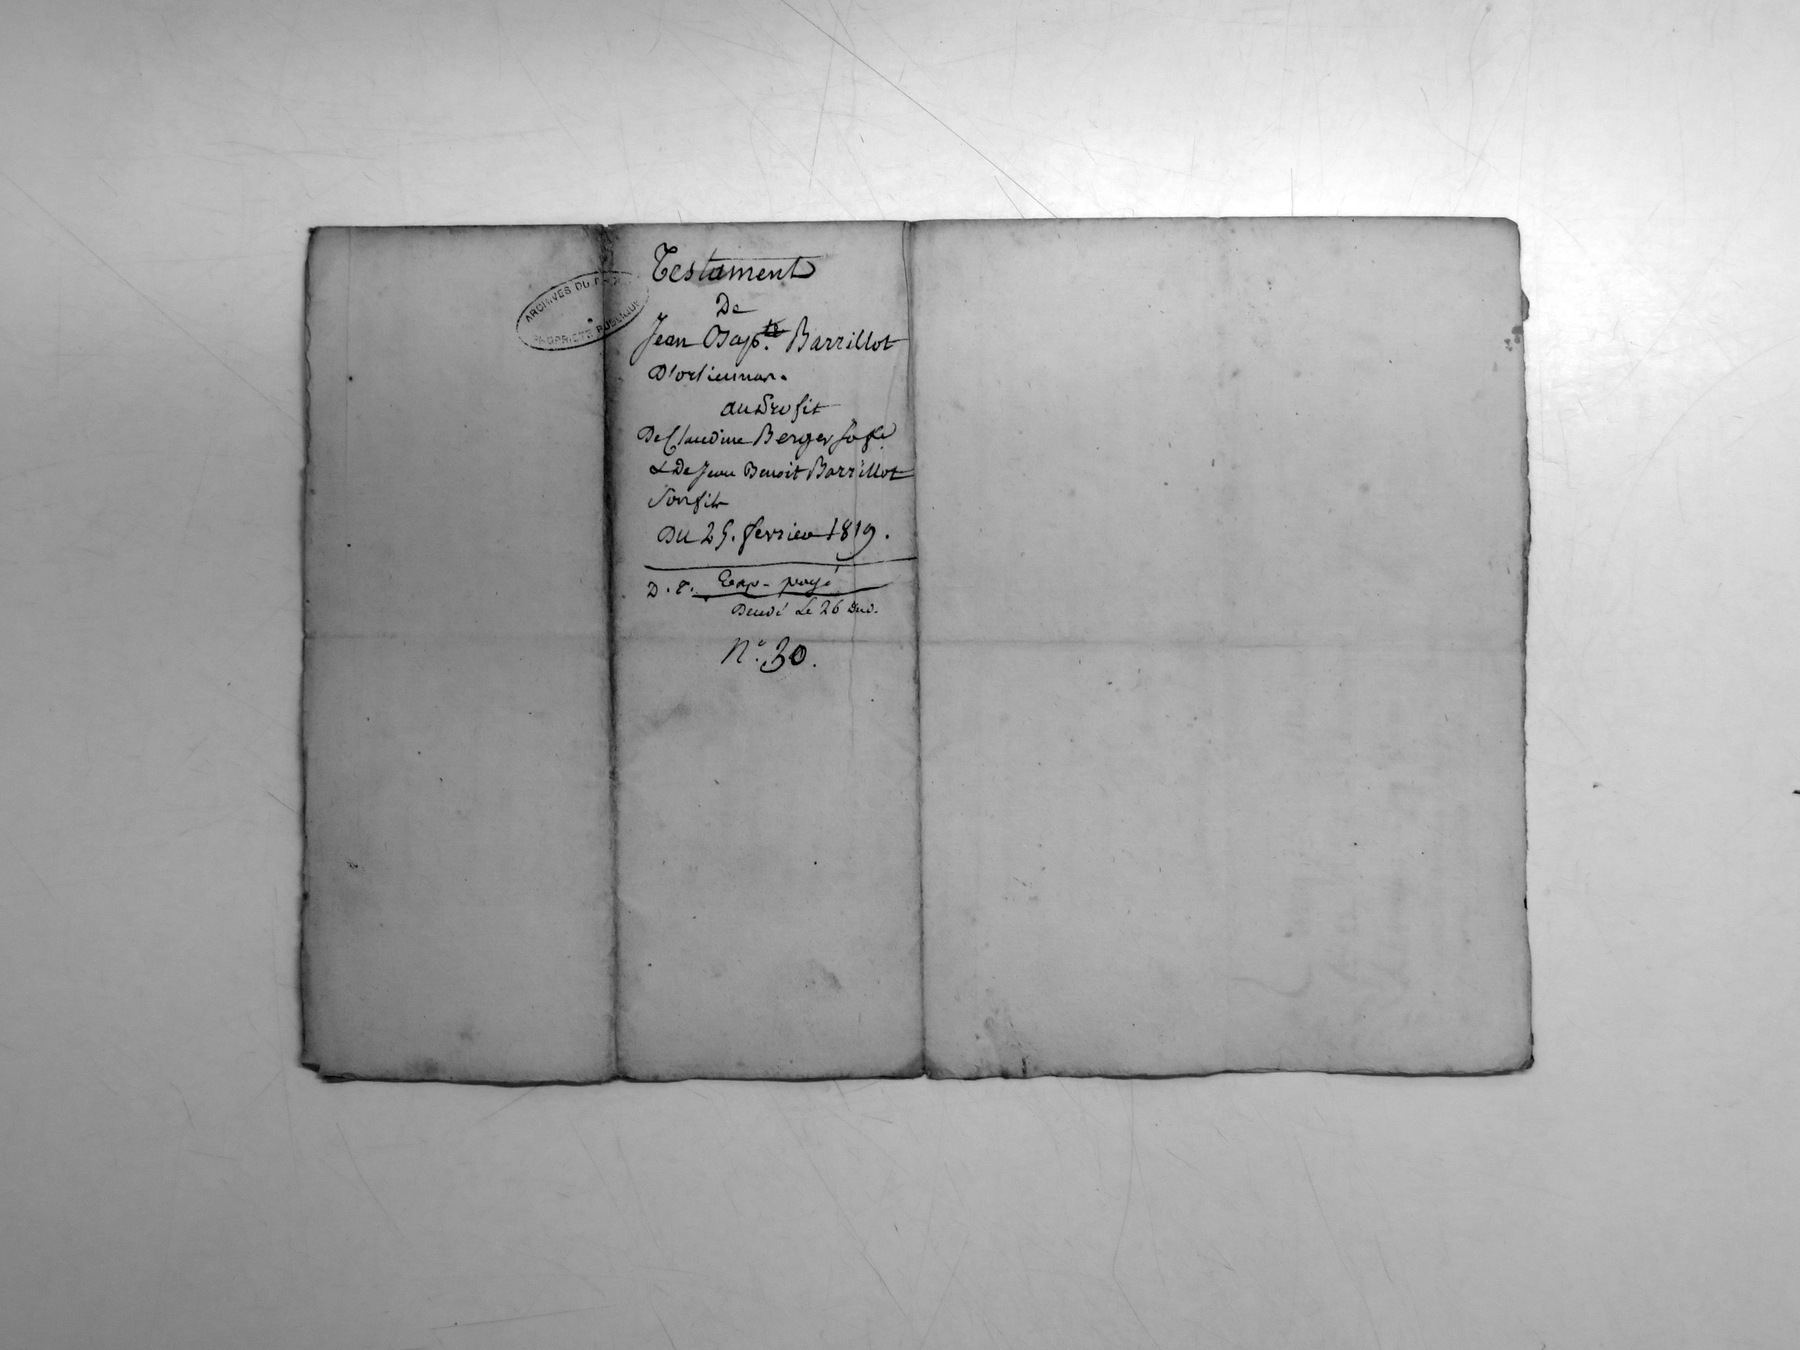 ARCHIVES DU
PROPRIÉTÉ PUBLIQUE
Testament
De
Jean Bap.te Barrillot
au Profit
De Claudine Berger sa fe
& De Jean Benoit Barrillot
Son fils
Du 25. fevrier 1819.
D. T. Exp- payé
Le 26 Dud.
N.o 30.